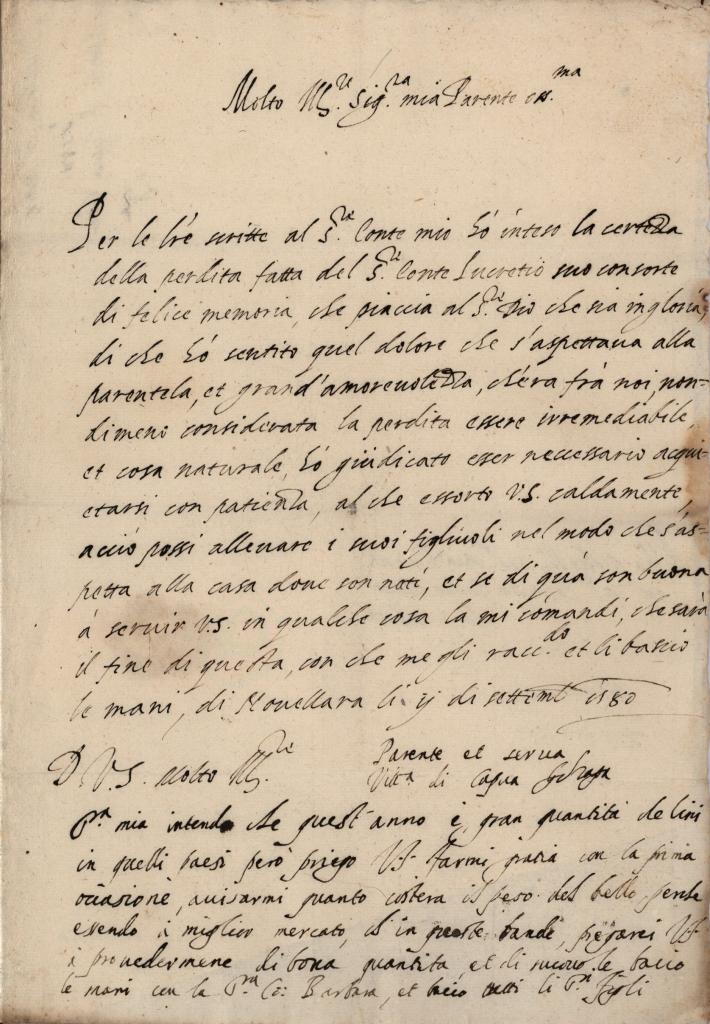 Molto Ill.re Sig.ra mia Parente oss.ma
Per le lr̃e scritte al S.re Conte mio hò inteso la certezza
della perdita fatta del S.re Conte Lucretio suo consorte
di felice memoria, che piaccia al S.re Dio che sia in gloria,
di che hò sentito quel dolore che s'aspettaua alla
parentela, et grand'amoreuolezza, ch'era frà noi, non=
dimeno considerata la perdita essere irremediabile,
et cosa naturale, hò giudicato esser necessario acqui=
etarsi con patienza, al che essorto V.S. caldamente,
acciò possi alleuare i suoi figliuoli nel modo che s'as=
petta alla casa doue son nati, et se di quà son buona
à seruir V.S. in qualche cosa la mi comandi, che sarà
il fine di questa, con che me gli racc.do et li bascio
le mani, di Nouellara li ij di settemb 1580
D. V.S. Molto Ill.re
Parente et serua
Vitt.a di Capua Gonzaga
S.ra mia intendo che quest'anno è gran quantità de lini
in quelli paesi però priego V.S. farmi gratia con la prima
occasione, auisarmi quanto costera il peso del bello, perche
essendo à miglior mercato, ch'in queste bande, pregarei V.S.
à prouedermene di bona quantita, et di nuouo le bacio
le mani con la S.ra Co: Barbara, et bacio tutti li S.ri figli